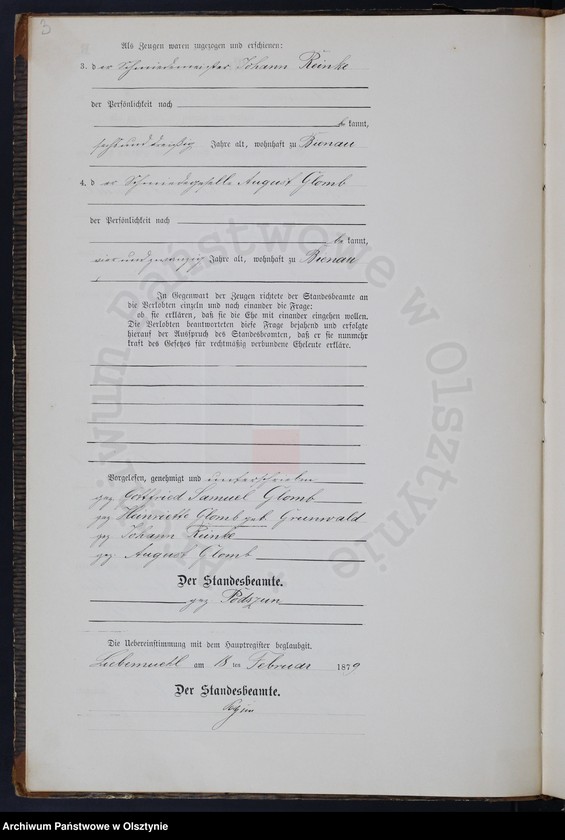 3
Als Zeugen waren zugezogen und erschienen:
3. der Schmiedemeister Johann Reinke
der Persönlichkeit nach
be kannt,
sechsunddreißig Jahre alt, wohnhaft zu Bienau
4. der Schmiedegeselle August Glomb
der Persönlichkeit nach
be kannt,
vierundzwanzig Jahre alt, wohnhaft zu Bienau
In Gegenwart der Zeugen richtete der Standesbeamte an
die Verlobten einzeln und nach einander die Frage:
ob sie erklären, daß sie die Ehe mit einander eingehen wollen.
Die Verlobten beantworteten diese Frage bejahend und erfolgte
hierauf der Ausspruch des Standesbeamten, daß er sie nunmehr
kraft des Gesetzes für rechtmäßig verbundene Eheleute erkläre.
Vorgelesen, genehmigt und unterschrieben
gez Gottfried Samuel Glomb
gez Henriette Glomb geb. Grunwald
gez Johann Reinke
gez August Glomb
Der Standesbeamte.
gez Podszun
Die Uebereinstimmung mit dem Hauptregister beglaubigt.
Liebemuehl am 18 ten Februar 1879
Der Standesbeamte.
Archiwum Państwowe w Olsztynie
Archiwum Państwowe w Olsztynie